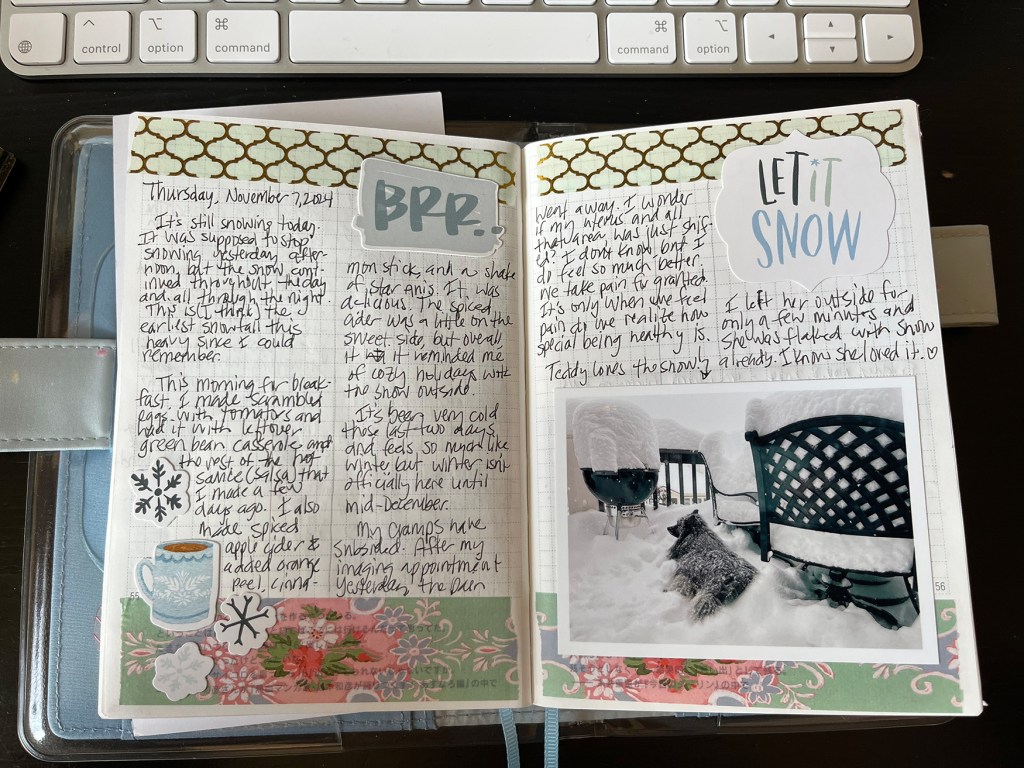 control
option
command
command
option
Thursday, November 7, 2024
It's still snowing today.
It was supposed to stop
snowing yesterday after-
noon, but the snow cont-
inued throughout the day
and all through the night.
This is (I think) the
earliest snowfall this
heavy since I could
remember.
This morning for break-
fast, I made scrambled
eggs with tomatoes and
had it with leftover
green bean casserole and
the rest of the hot
sauce (salsa) that
I made a few
days ago. I also
made spiced
apple cider &
added orange
peel, cinna-
BRR..
mon stick, and a shake
of star anis. It was
delicious. The spiced
cider was a little on the
sweet side, but overall,
it it reminded me
of cozy holidays with
the snow outside.
It's been very cold
these last two days
and feels so much like
winter, but winter isn't
officially here until
mid-December.
My cramps have
subsided. After my
imaging appointment
yesterday, the pain
55
LET IT
SNOW
went away. I wonder
if my uterus and all
that area was just shif-
ted? I don't know, but I
do feel so much better.
We take pain for granted.
It's only when we feel
pain do we realize how
special being healthy is.
Teddy loves the snow!
I left her outside for
only a few minutes and
she was flaked with snow
already. I know she loved it. ♡
56